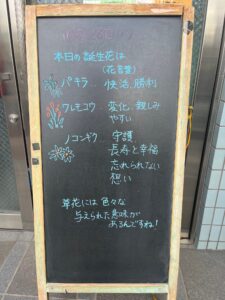 本日の誕生花は
(花言葉)
パキラ 快活、勝利
ワレモコウ… 変化、親しみ
やすい
ノコンギク… 守護
長寿と幸福
忘れられない
想い
草花には色々な
与えられた意味が
あるんですね!